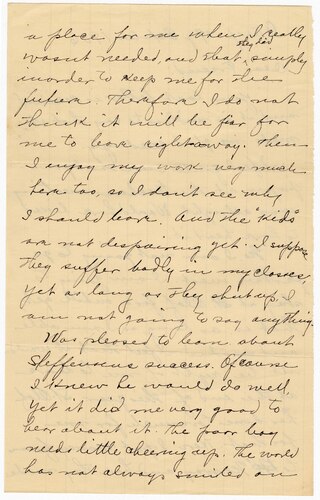 a place for me when I really
wasn't needed and that they had simply
inorder to keep me for the
future. Therefore I do not
think it will be fair for
me to leave right away. Then
I enjoy my work very much
here too, so I don't see why
I should leave. And the "kids"
are not despairing yet. I suppose
they suffer badly in my classes,
yet as long as they shut up, I
am not going to say anything.
Was pleased to learn about
Steffensens success. Of course
I knew he would do well,
yet it did me very good to
hear about it. The poor boy
needs little cheering up. The world
has not always smiled on